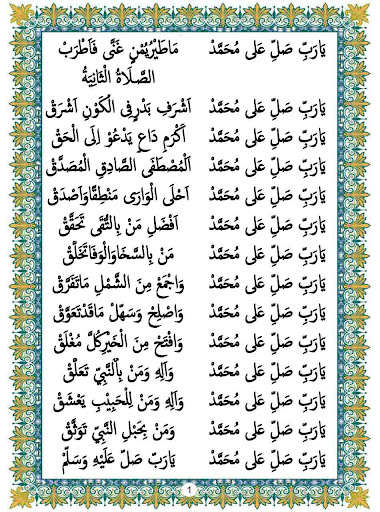 يَارَبِّ صَلِّ عَلَى مُحَمَّدْ مَاطَيْرُيُمْنٍ غَنَّى فَاَطْرَبْ
الصَّلَاةُ الثَّانِيَةُ
يَارَبِّ صَلِّ عَلَى مُحَمَّدْ اَشْرَفِ بَدْرٍفِى الْكَوْنِ اَشْرَقْ
يَارَبِّ صَلِّ عَلَى مُحَمَّدْ اَكْرَمِ دَاعٍ يَدْعُوْ اِلَى الْحَقّْ
يَارَبِّ صَلِّ عَلَى مُحَمَّدْ اَلْمُصْطَفَى الصَّادِقِ الْمُصَدَّقْ
يَارَبِّ صَلِّ عَلَى مُحَمَّدْ اَحْلَى الْوَارَى مَنْطِقًاوَاَصْدَقْ
يَارَبِّ صَلِّ عَلَى مُحَمَّدْ اَفْضَلِ مَنْ بِالتُّقَى تَحَقَّقْ
يَارَبِّ صَلِّ عَلَى مُحَمَّدْ مَنْ بِالسَّخَاوَالْوَفَاتَخَلَّقْ
يَارَبِّ صَلِّ عَلَى مُحَمَّدْ وَاجْمَعْ مِنَ الشَّمْلِ مَاتَفَرَّقْ
يَارَبِّ صَلِّ عَلَى مُحَمَّدْ وَاصْلِحْ وَسَهِّلْ مَاقَدْتَعَوَّقْ
يَارَبِّ صَلِّ عَلَى مُحَمَّدْ وَافْتَحْ مِنَ الْخَيْرِكُلَّ مُغْلَقْ
يَارَبِّ صَلِّ عَلَى مُحَمَّدْ وَآلِهِ وَمَنْ بِالنَّبِيِّ تَعَلَّقْ
يَارَبِّ صَلِّ عَلَى مُحَمَّدْ وَآلِهِ وَمَنْ لِلْحَبِيْبِ يَعْشَقْ
يَارَبِّ صَلِّ عَلَى مُحَمَّدْ وَمَنْ بِحَبْلِ النَّبِيِّ تَوَثَّقْ
يَارَبِّ صَلِّ عَلَى مُحَمَّدْ يَارَبِّ صَلِّ عَلَيْهِ وَسَلِّمْ
1